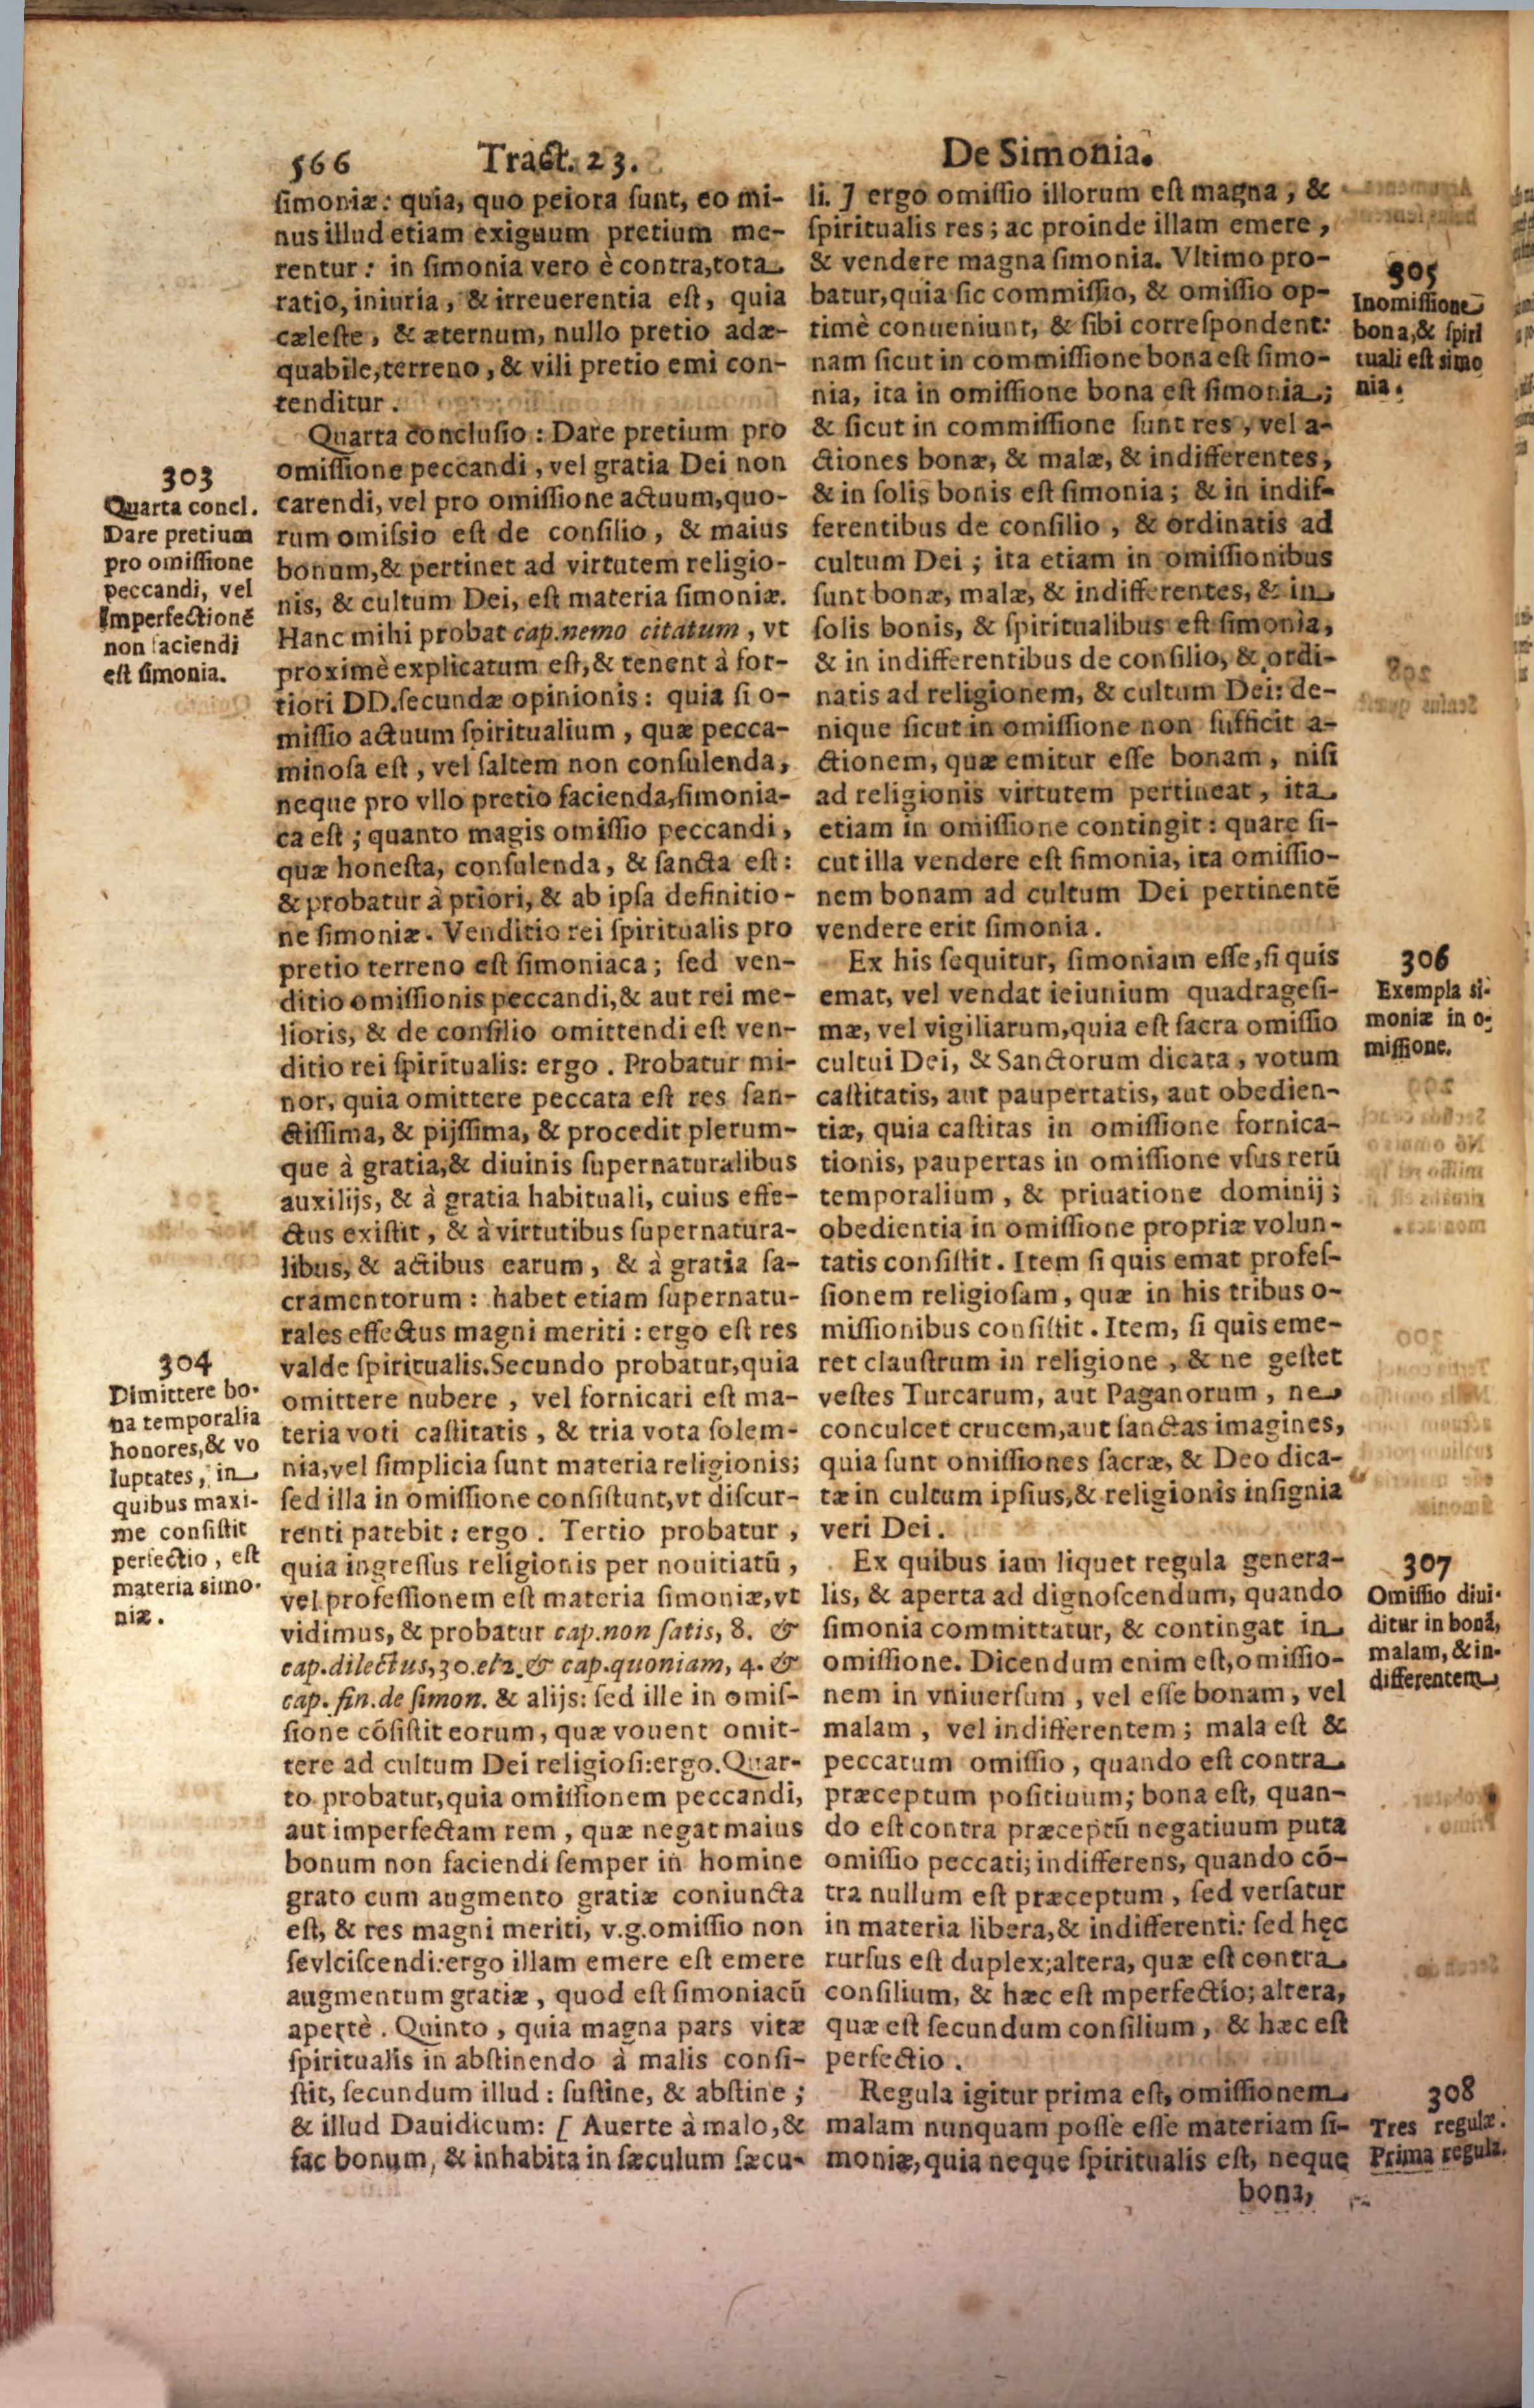 566 Tract. 23. De Simonia.
simoniæ: quia, quo peiora sunt, eo mi-
nus illud etiam exiguum pretium me-
rentur: in simonia vero è contra, tota
ratio, iniuria, & irreuerentia est, quia
cæleste, & æternum, nullo pretio adæ-
quabile, terreno, & vili pretio emi con-
tenditur.
303
Quarta concl.
Dare pretium
pro omissione
peccandi, vel
Imperfectionē
non faciendi
est simonia.
Quarta conclusio: Dare pretium pro
omissione peccandi, vel gratia Dei non
carendi, vel pro omissione actuum, quo-
rum omissio est de consilio, & maius
bonum, & pertinet ad virtutem religio-
nis, & cultum Dei, est materia simoniæ.
Hanc mihi probat cap. nemo citatum, vt
proximè explicatum est, & tenent à for-
tiori DD. secundæ opinionis: quia si o-
missio actuum spiritualium, quæ pecca-
minosa est, vel saltem non consulenda,
neque pro vllo pretio facienda, simonia-
ca est; quanto magis omissio peccandi,
quæ honesta, consulenda, & sancta est:
& probatur à priori, & ab ipsa definitio-
ne simoniæ. Venditio rei spiritualis pro
pretio terreno est simoniaca; sed ven-
ditio omissionis peccandi, & aut rei me-
lioris, & de consilio omittendi est ven-
ditio rei spiritualis: ergo. Probatur mi-
nor, quia omittere peccata est res san-
ctissima, & pijssima, & procedit plerum-
que à gratia, & diuinis supernaturalibus
auxilijs, & à gratia habituali, cuius effe-
ctus existit, & à virtutibus supernatura-
libus, & actibus earum, & à gratia sa-
cramentorum: habet etiam supernatu-
rales effectus magni meriti: ergo est res
valde spiritualis. Secundo probatur, quia
omittere nubere, vel fornicari est ma-
teria voti castitatis, & tria vota solem-
nia, vel simplicia sunt materia religionis;
sed illa in omissione consistunt, vt discur-
renti patebit: ergo. Tertio probatur,
quia ingressus religionis per nouitiatū,
vel professionem est materia simoniæ, vt
vidimus, & probatur cap. non satis, 8. &
cap. dilectus, 30. el 2. & cap. quoniam, 4. &
cap. fin. de simon. & alijs: sed ille in omis-
sione cōsistit eorum, quæ vouent omit-
tere ad cultum Dei religiosi: ergo. Quar-
to probatur, quia omissionem peccandi,
aut imperfectam rem, quæ negat maius
bonum non faciendi semper in homine
grato cum augmento gratiæ coniuncta
est, & res magni meriti, v.g. omissio non
sevlciscendi: ergo illam emere est emere
augmentum gratiæ, quod est simoniacū
apertè. Quinto, quia magna pars vitæ
spiritualis in abstinendo à malis consi-
stit, secundum illud: sustine, & abstine;
& illud Dauidicum: [ Auerte à malo, &
fac bonum, & inhabita in sæculum sæcu-
304
Dimittere bo-
na temporalia
honores, & vo
luptates, in
quibus maxi-
me consistit
perfectio, est
materia simo-
niæ.
li. ] ergo omissio illorum est magna, &
spiritualis res; ac proinde illam emere,
& vendere magna simonia. Vltimo pro-
batur, quia sic commissio, & omissio op-
timè conueniunt, & sibi correspondent:
nam sicut in commissione bona est simo-
nia, ita in omissione bona est simonia;
& sicut in commissione sunt res, vel a-
ctiones bonæ, & malæ, & indifferentes,
& in solis bonis est simonia; & in indif-
ferentibus de consilio, & ordinatis ad
cultum Dei; ita etiam in omissionibus
sunt bonæ, malæ, & indifferentes, & in
solis bonis, & spiritualibus est simonia,
& in indifferentibus de consilio, & ordi-
natis ad religionem, & cultum Dei: de-
nique sicut in omissione non sufficit a-
ctionem, quæ emitur esse bonam, nisi
ad religionis virtutem pertineat, ita
etiam in omissione contingit: quare si-
cut illa vendere est simonia, ita omissio-
nem bonam ad cultum Dei pertinentē
vendere erit simonia.
305
In omissione
bona, & spiri
tuali est simo
nia.
Ex his sequitur, simoniam esse, si quis
emat, vel vendat ieiunium quadragesi-
mæ, vel vigiliarum, quia est sacra omissio
cultui Dei, & Sanctorum dicata, votum
castitatis, aut paupertatis, aut obedien-
tiæ, quia castitas in omissione fornica-
tionis, paupertas in omissione vsus rerū
temporalium, & priuatione dominij;
obedientia in omissione propriæ volun-
tatis consistit. Item si quis emat profes-
sionem religiosam, quæ in his tribus o-
missionibus consistit. Item, si quis eme-
ret claustrum in religione, & ne gestet
vestes Turcarum, aut Paganorum, ne
conculcet crucem, aut sanctas imagines,
quia sunt omissiones sacræ, & Deo dica-
tæ in cultum ipsius, & religionis insignia
veri Dei.
306
Exempla si-
moniæ in o-
missione.
Ex quibus iam liquet regula genera-
lis, & aperta ad dignoscendum, quando
simonia committatur, & contingat in
omissione. Dicendum enim est, omissio-
nem in vniuersum, vel esse bonam, vel
malam, vel indifferentem; mala est &
peccatum omissio, quando est contra
præceptum positiuum; bona est, quan-
do est contra præceptū negatiuum puta
omissio peccati; indifferens, quando cō-
tra nullum est præceptum, sed versatur
in materia libera, & indifferenti: sed hęc
rursus est duplex; altera, quæ est contra
consilium, & hæc est mperfectio; altera,
quæ est secundum consilium, & hæc est
perfectio.
307
Omissio diui-
ditur in bonā,
malam, & in-
differentem
Regula igitur prima est, omissionem
malam nunquam posse esse materiam si-
moniæ, quia neque spiritualis est, neque
bona,
308
Tres regulæ.
Prima regula.